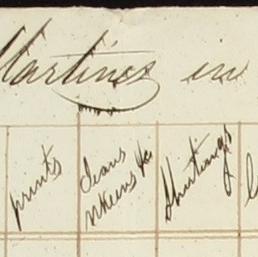 Martinez en
prints
Jeans
nkeens &c
Shirtings